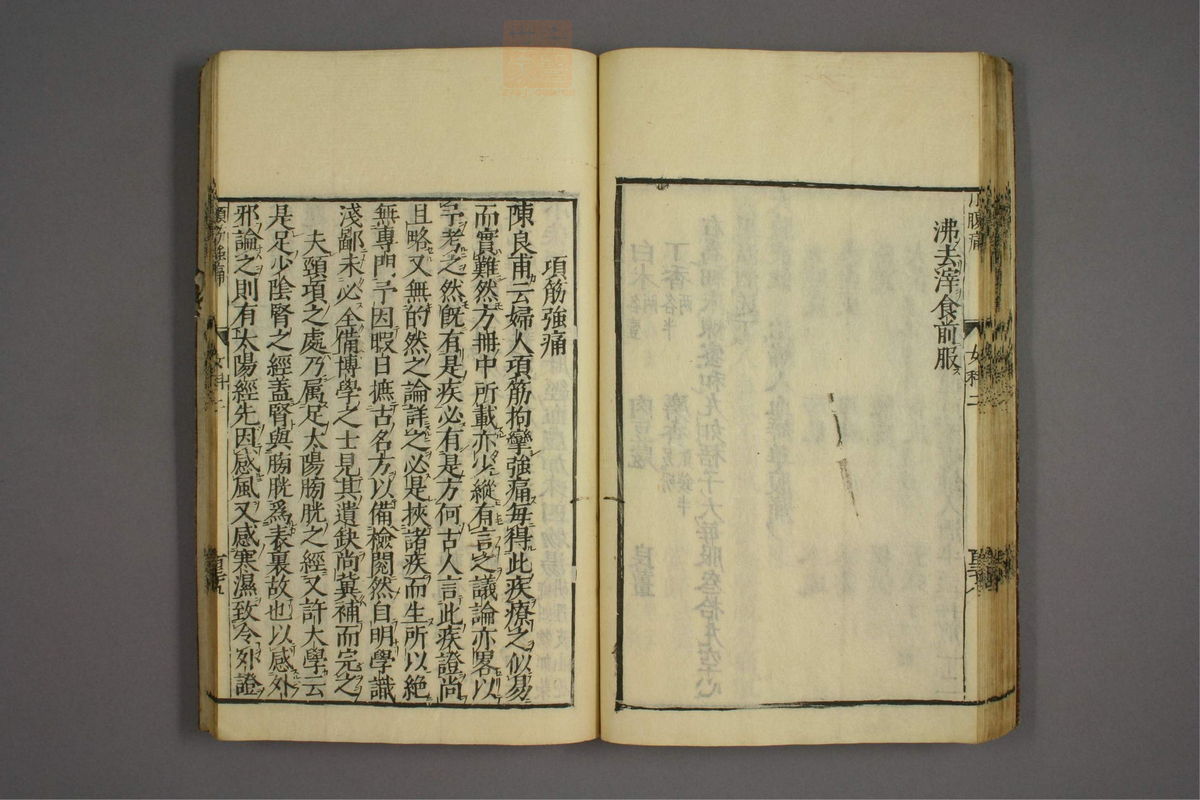 沸去滓食前服
女科二
項筋強痛
陳良甫云婦人項筋拘攣強痛每得此疾療之似易
而實難然方冊中所載亦少縱有言之議論亦畧以
予考之然旣有是疾必有是方何古人言此疾證尚
且略又無的然之論詳之必是挾諸疾而生所以絶
無專門予因暇日摭古名方以備檢閱然自明學識
淺鄙未必全備博學之士見其遺缺尚冀補而完之
夫頸項之處乃属足太陽膀胱之經又許大學云
是足少陰腎之經盖腎與膀胱爲表裏故也以感外
邪論之則有太陽經先因感風又感寒濕致令外證
項筋強痛
女科二